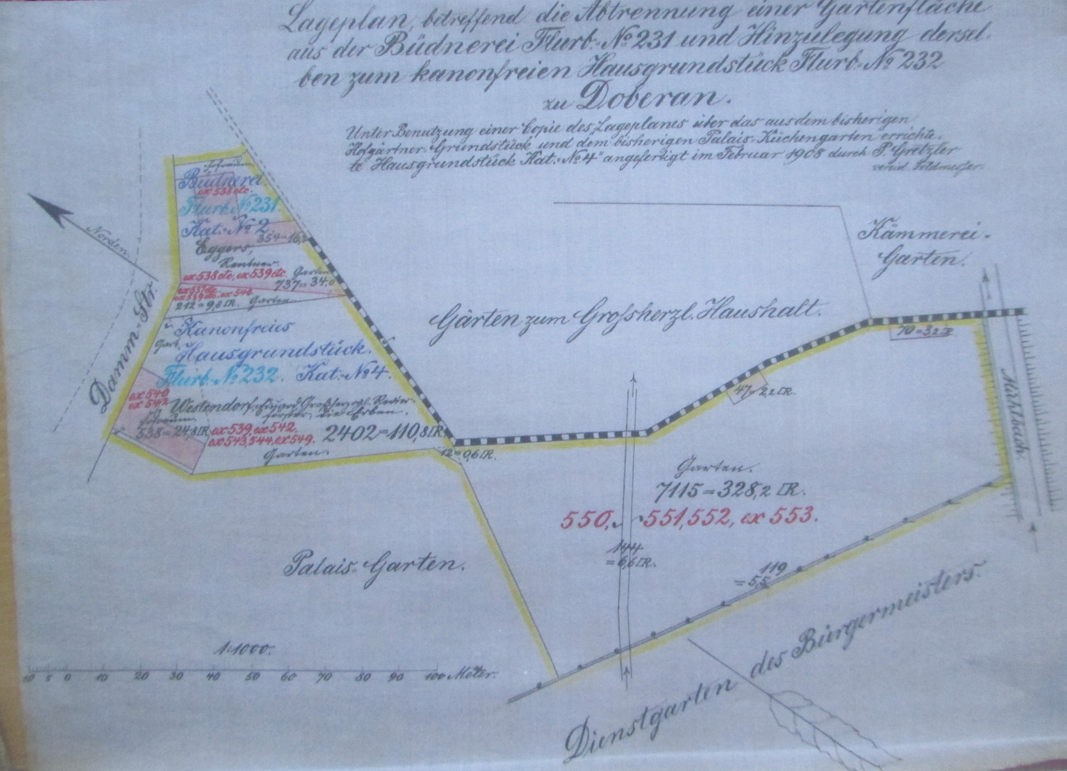 Lageplan, betreffend die Abtrennung einer Gartenfläche
aus der Büdnerei Flurb. №231 und Hinzulegung dersel-
ben zum kanonfreien Hausgrundstück Flurb. № 232
zu Doberan.
Unter Benutzung einer Copie des Lageplanes über das aus dem bisherigen
Hofgärtner-Grundstück und dem bisherigen Palais-Küchengarten errichte-
te Hausgrundstück Kat. №4 angefertigt im Februar 1908 durch
Büdnerei
ex 538 etc.
Flurb. №231
Kat. №2.
Eggers,
Rentner.
ex 538 etc, ex 539 etc.
Garten
737=34.0
212=9,8 □R.
Garten
Norden
Damm-Str.
Kanonfreies
Hausgrundstück
Flurb. №232. Kat. №4.
ex 540
ex 542
Westendorf,
538=24,8□R
ex 539, ex 542.
ex 543, 544, ex 549.
2402=110,8□R
Garten.
12=0,6□R.
Gärten zum Großherzl. Haushalt.
Kämmerei-
Garten.
70=3,2□R
47=2,2□R.
Mühlbach.
Garten.
7115=328,2□R.
550, 551, 552, ex 553.
144
=6,6□R.
119
=5,5
Palais-Garten.
Dienstgarten des Bürgermeisters.
1:1000.
10 5 0 10 20 30 40 50 60 70 80 90 100 Meter.